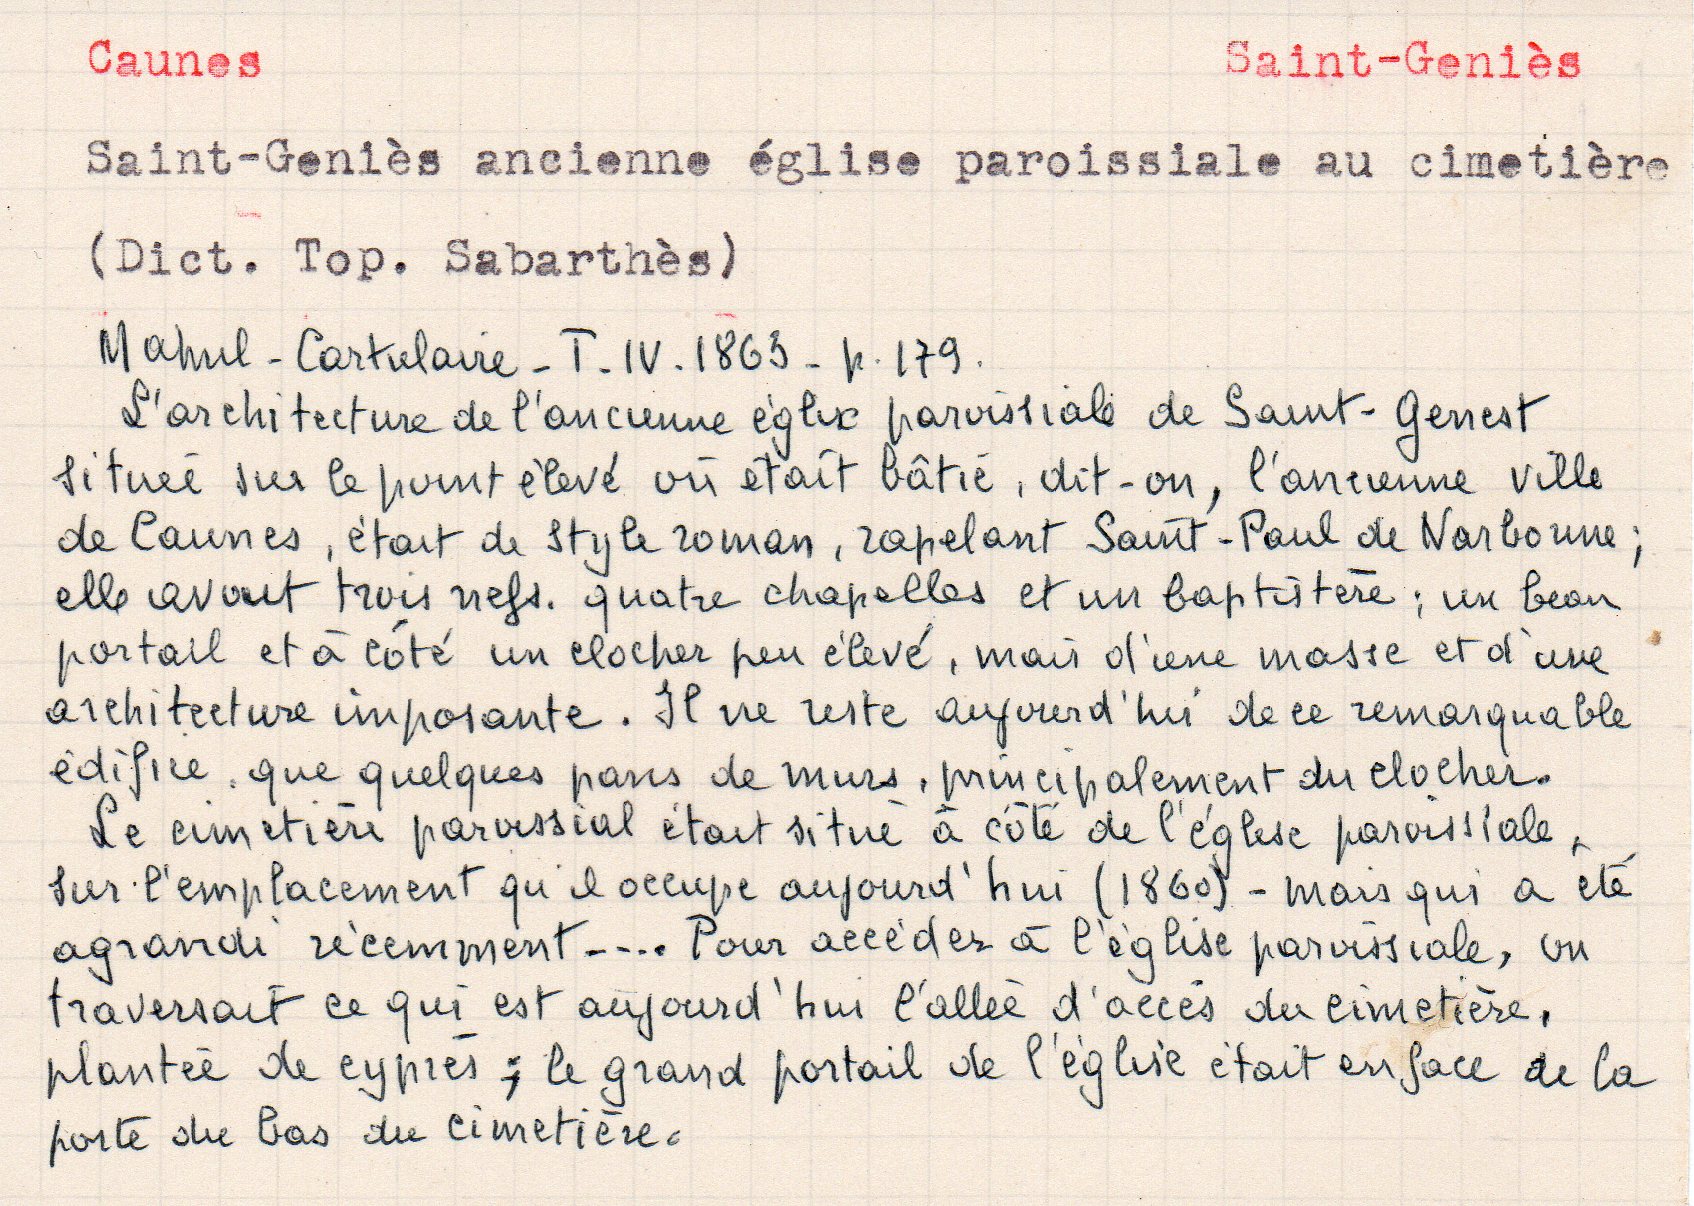 Caunes Saint-Geniès
Saint-Geniès ancienne église paroissiale au cimetière
(Dict. Top. Sabarthès)
Mahul - Cartulaire - T. IV. 1863 - p. 179.
L'architecture de l'ancienne église paroissiale de Saint-Genest
située sur le point élevé où était bâtie, dit-on, l'ancienne ville
de Caunes, était de style roman, rapelant Saint-Paul de Narbonne;
elle avait trois nefs. quatre chapelles et un baptistère; un beau
portail et à côté un clocher peu élevé, mais d'une masse et d'une
architecture imposante. Il ne reste aujourd'hui de ce remarquable
édifice, que quelques pans de murs, principalement du clocher.
Le cimetière paroissial était situé à côté de l'église paroissiale,
sur l'emplacement qu'il occupe aujourd'hui (1860) - mais qui a été
agrandi récemment ---. Pour accéder à l'église paroissiale, on
traversait ce qui est aujourd'hui l'allée d'accès du cimetière,
plantée de cyprès ; le grand portail de l'église était en face de la
porte du bas du cimetière.